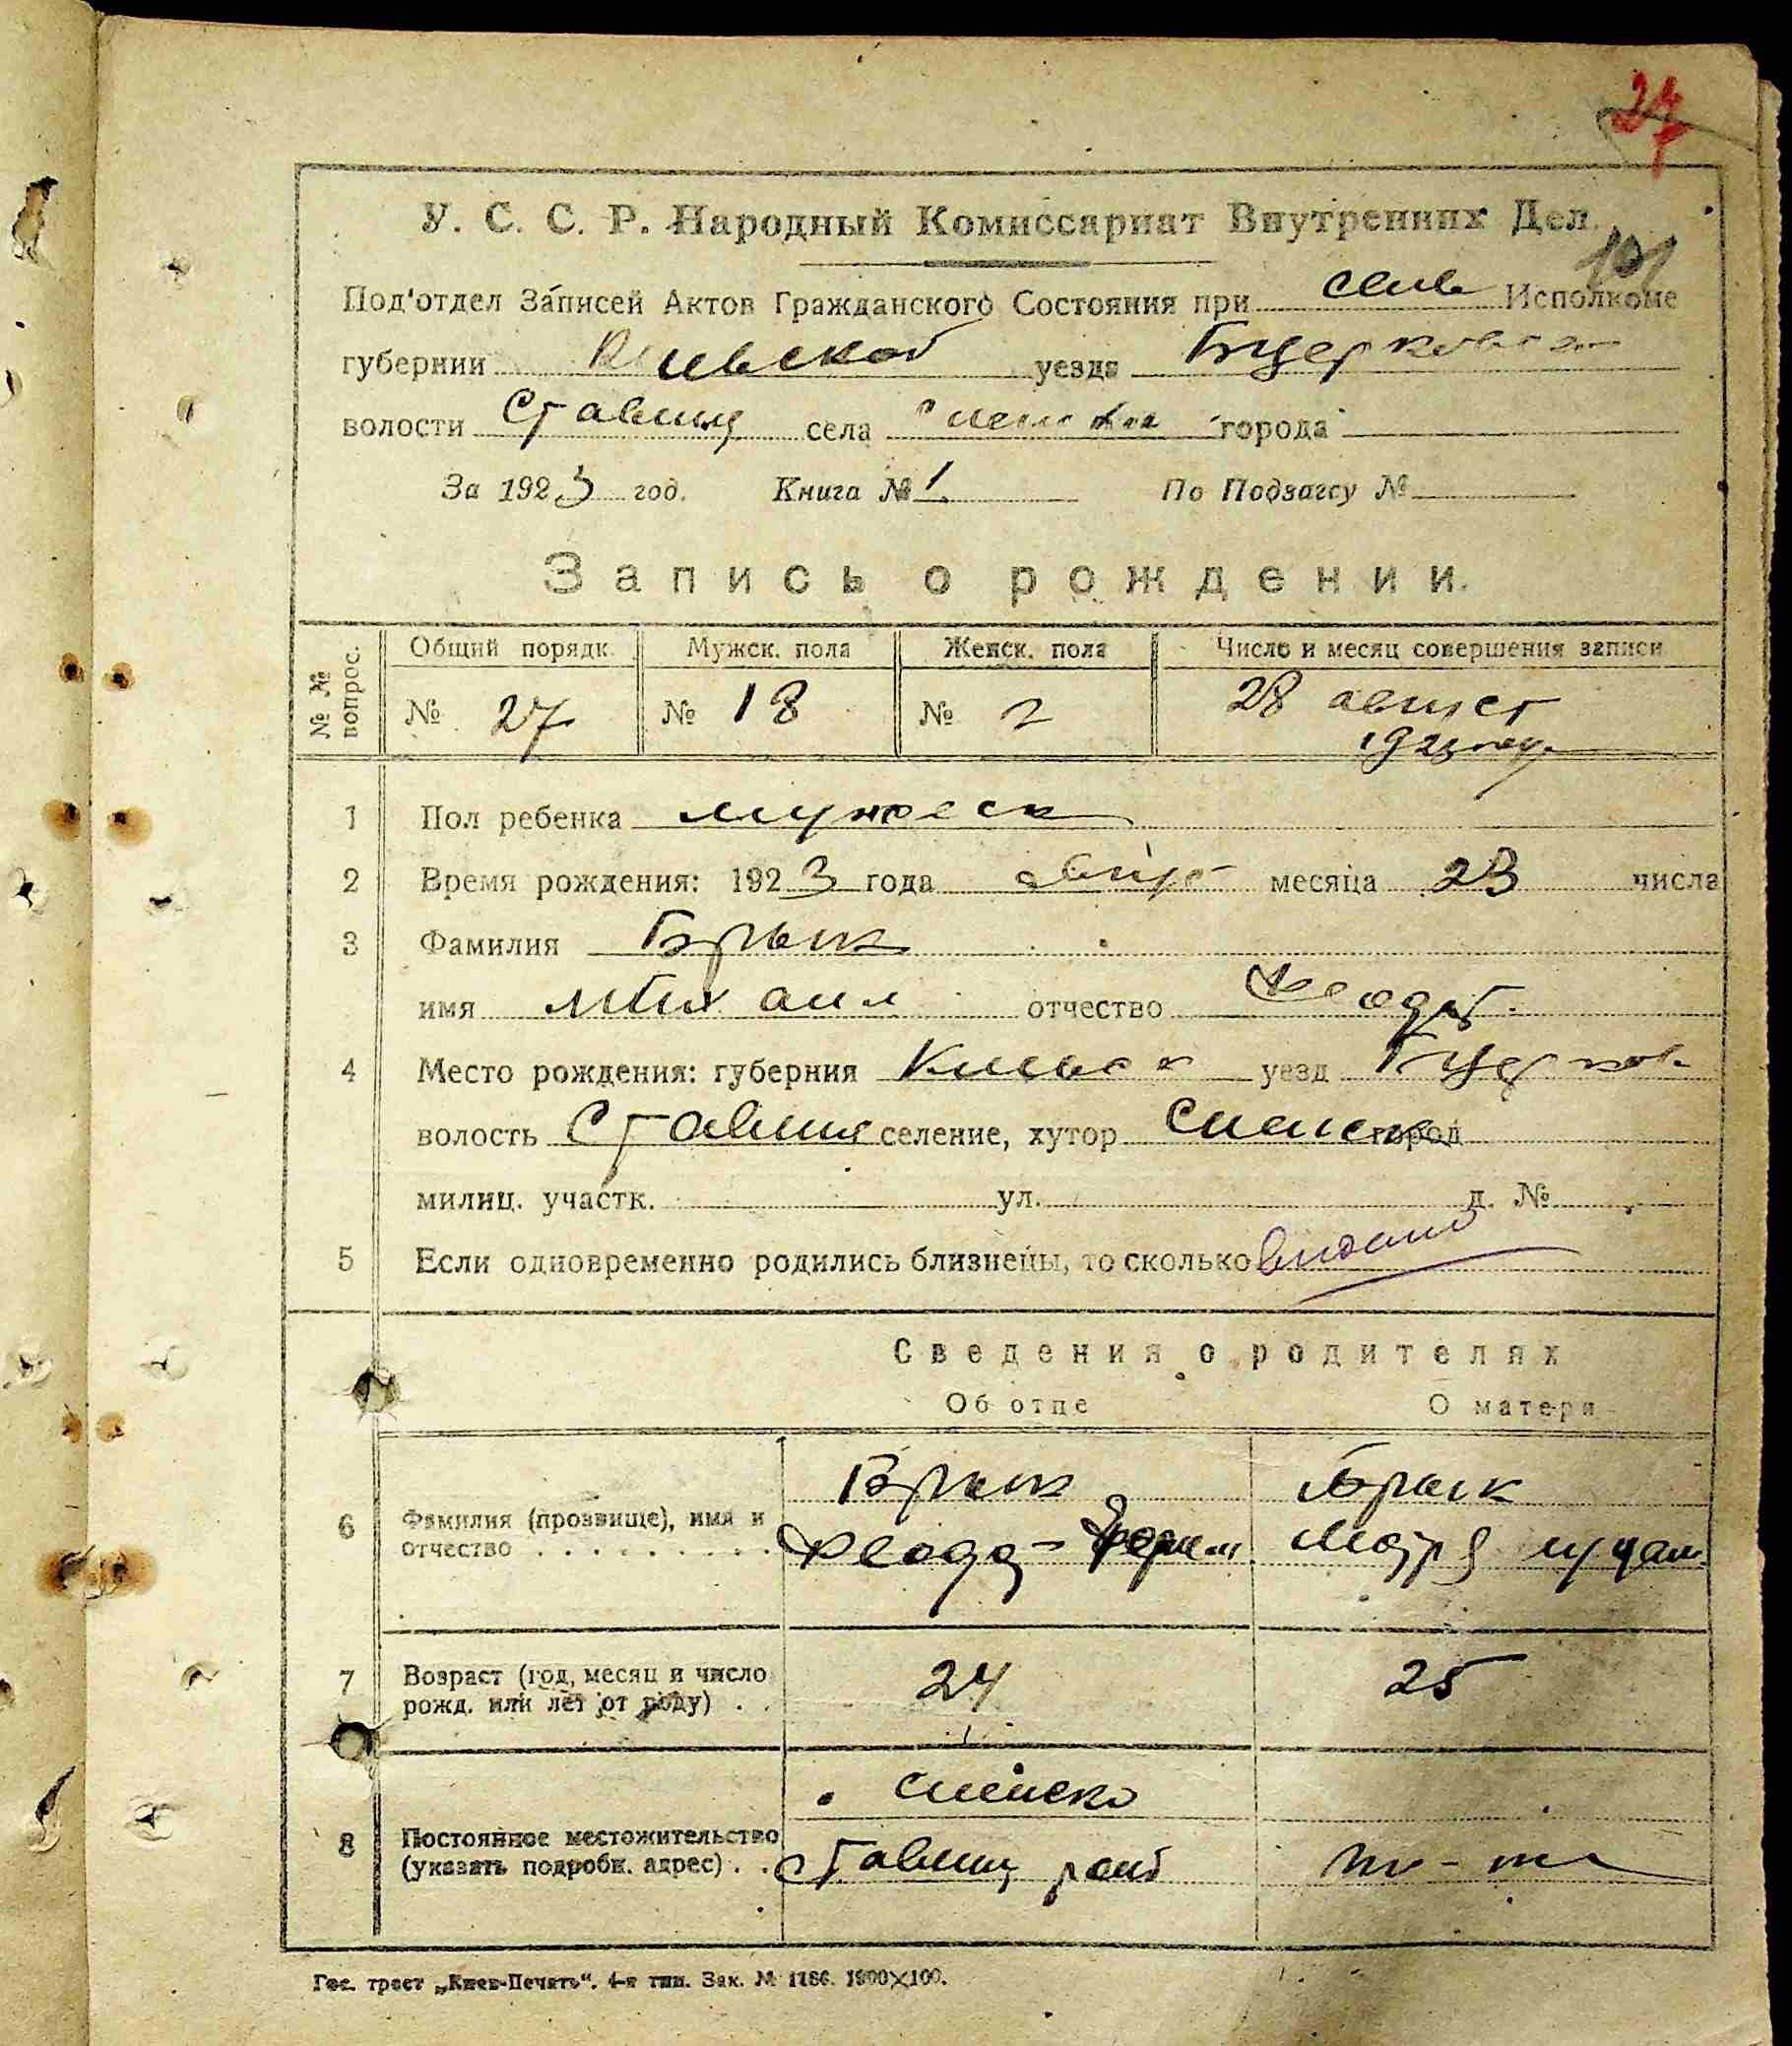 24
У. С. С. Р. Народный Комиссариат Внутренних Дел.
101
Под'отдел Записей Актов Гражданского Состояния при сельв Исполкоме
губернии Киевской уезда Бцерковского
волости Ставищ села города
За 1923 год. Книга № 1 По Подзагсу №
Запись о рождении.
№ № вопрос.
Общий порядк. Мужск. пола Женск. пола Число и месяц совершения записи
№ 27 № 18 № 28 август
1923 году
1 Пол ребенка мужеск
2 Время рождения: 1923 года август месяца 23 числа
3 Фамилия Брык
имя Михаил отчество Феодос
4 Место рождения: губерния Киевск уезд Бцерков
волость Ставищ селение, хутор город
милиц. участк. ул. д. №
5 Если одновременно родились близнецы, то сколько видано
Сведения о родителях
Об отце О матери
6 Фамилия (прозвище), имя и отчество . . . . . . . . .
Брык Брык
Феодо
7 Возраст (год, месяц и число рожд. или лет от роду) . .
24 25
8 Постоянное местожительство (указать подробн. адрес) . .
Ставищ рай то-же
Гос. трест „Киев-Печать“. 4-я тип. Зак. № 1186. 1000×100.